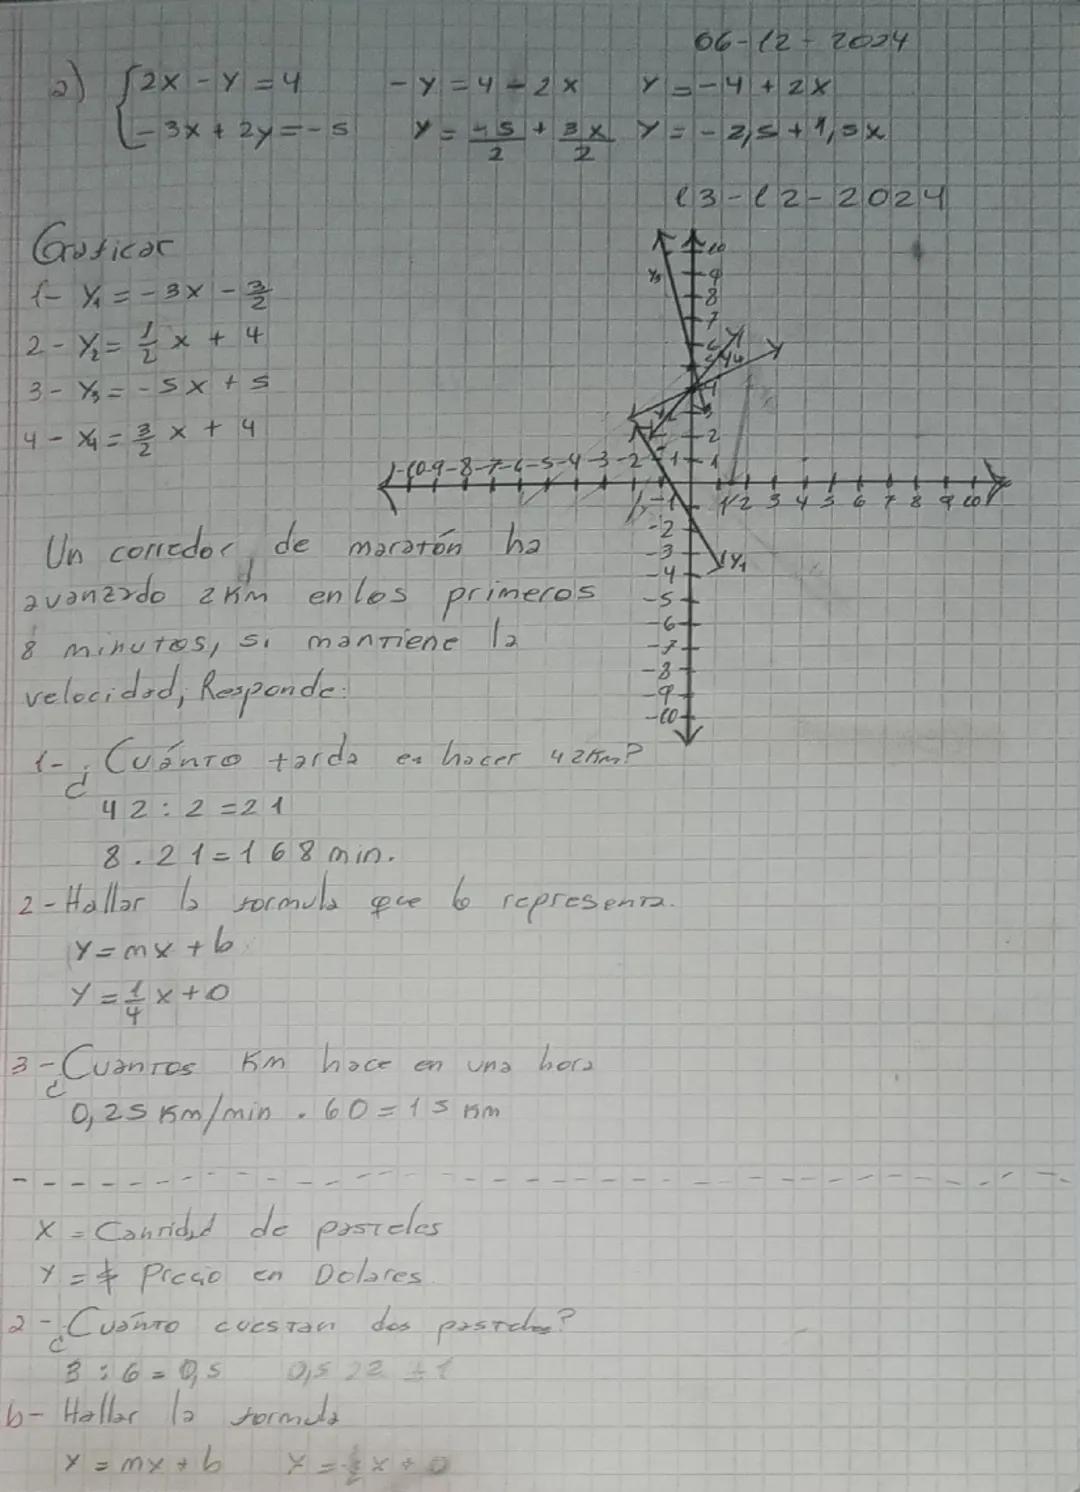 06-12-2024
a) { 2x - y = 4    - y = 4 - 2x    y = -4 + 2x
- 3x + 2y = - 5    y = -5/2 + 3x/2    y = - 2,5 + 1,5x
13-12-2024
Graficar
1- Y₁ = -3x - 3/2
2- Y₂ = 1/2 x + 4
3- Y₃ = -5x + 5
4- Y₄ = 3/2 x + 4
10
9
8
7
6
5
4
3
2
1
-10 -9 -8 -7 -6 -5 -4 -3 -2 -1
1 2 3 4 5 6 7 8 9 10
-1
-2
-3
-4
-5
-6
-7
-8
-9
-10
Y₃
Y₄
Y₁
Un corredor de maratón ha
avanzado 2 Km en los primeros
8 minutos, si mantiene la
velocidad, Responde:
1- ¿Cuánto tarda en hacer 42Km?
42 : 2 = 21
8 . 21 = 168 min.
2- Hallar la formula que lo representa.
Y = mx + b
Y = 1/4 x + 0
3- ¿Cuantos Km hace en una hora
0,25 Km/min . 60 = 15 Km
X = Cantidad de pasteles
Y = Precio en Dolares
a- ¿Cuánto cuestan dos pasteles?
3 : 6 = 0,5
b- Hallar la formula
Y = mx + b    Y = 1/2 x + 0